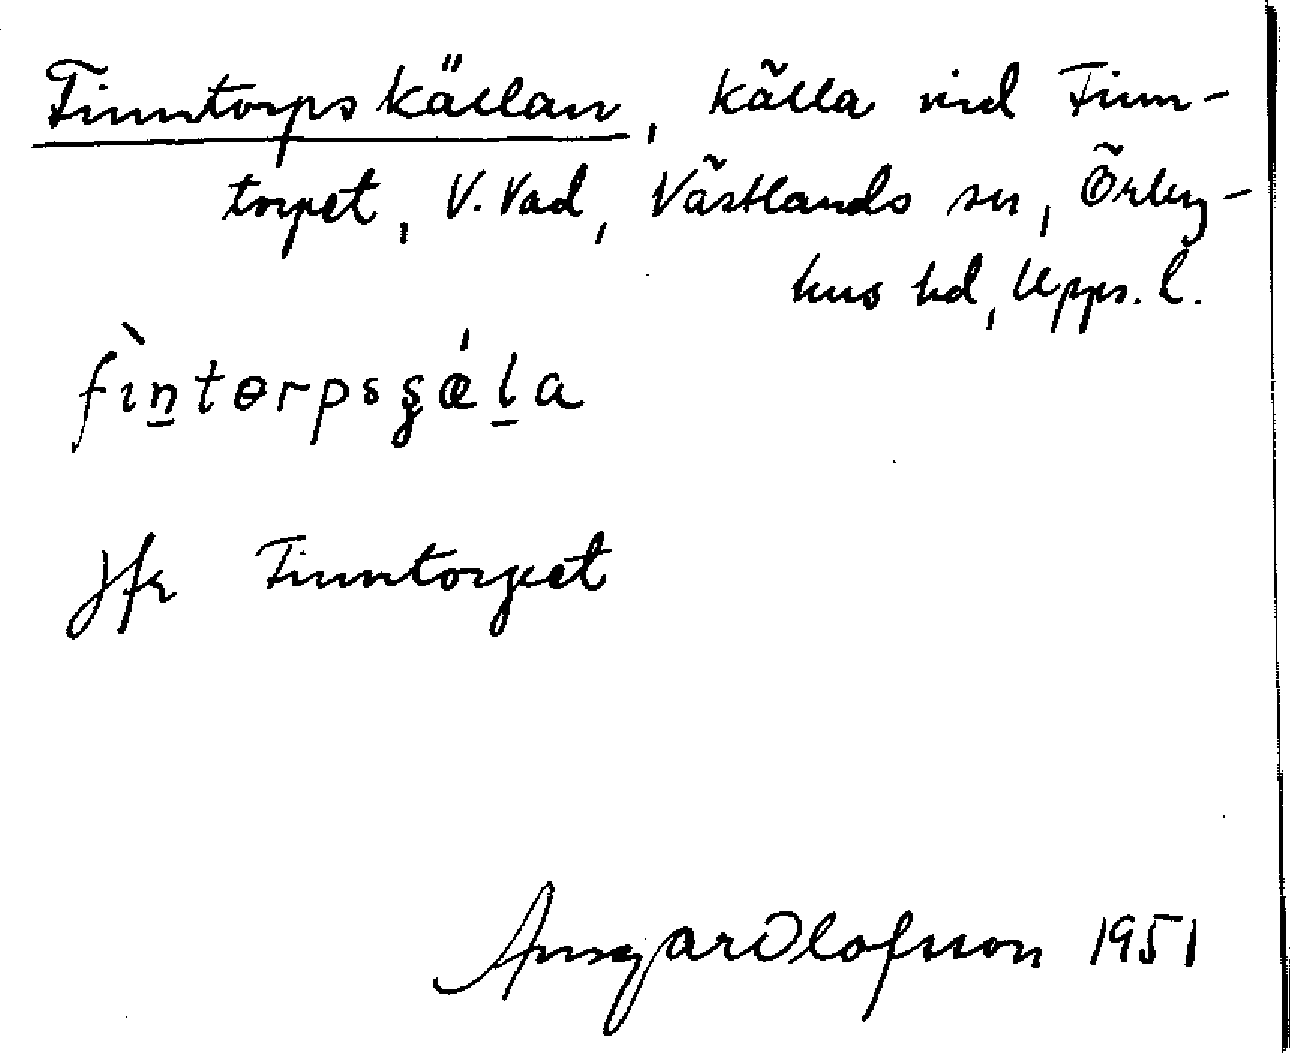 Finntorpskällan, källa vid Finn-
torpet, V. Vad, Västlands sn, Örby-
hus hd, Upps. l.
fìn̲tɵrpsʂǽl̲a
Jfr Finntorpet
Ansgar Olofsson 1951